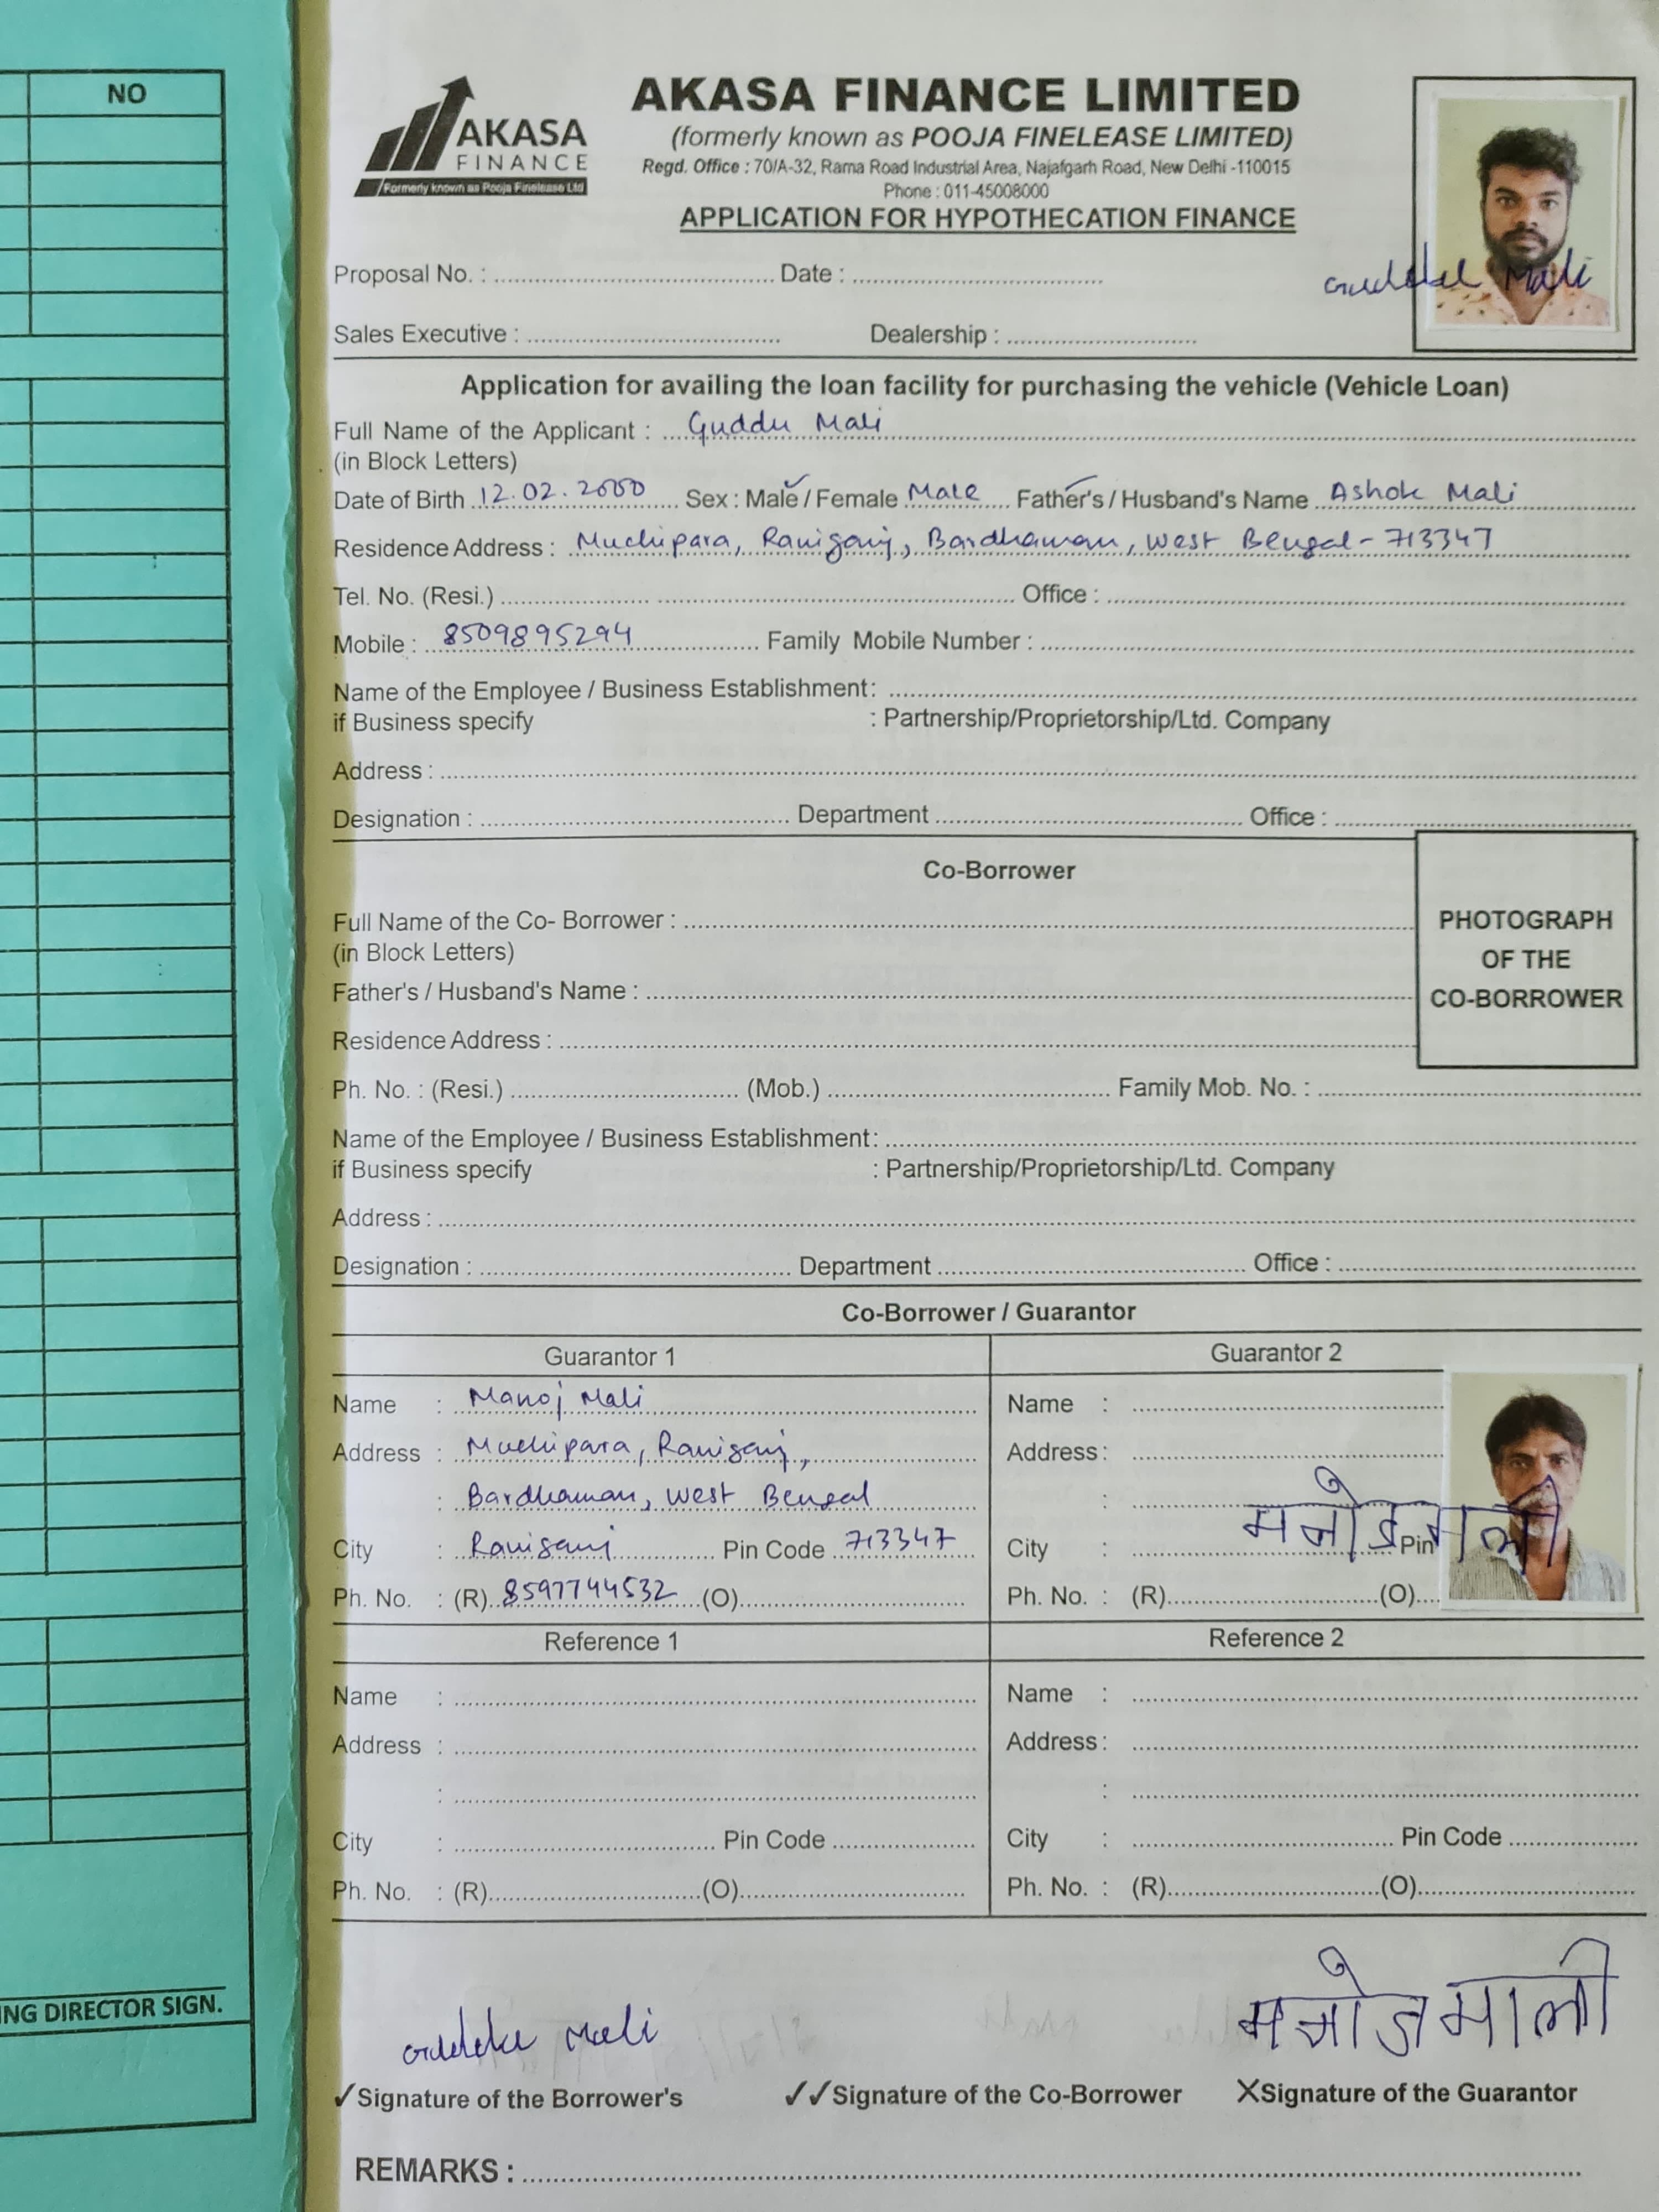 NO
AKASA
FINANCE
Formerly known as Pooja Finelease Ltd
AKASA FINANCE LIMITED
(formerly known as POOJA FINELEASE LIMITED)
Regd. Office : 70/A-32, Rama Road Industrial Area, Najafgarh Road, New Delhi -110015
Phone : 011-45008000
APPLICATION FOR HYPOTHECATION FINANCE
Proposal No. : Date :
Mali
Sales Executive : Dealership :
Application for availing the loan facility for purchasing the vehicle (Vehicle Loan)
Full Name of the Applicant : Guddu Mali
(in Block Letters)
Date of Birth 12.02.2000 Sex : Male / Female Male Father's / Husband's Name Ashok Mali
Residence Address : Muchipara, Raniganj, Bardhaman, West Bengal - 713347
Tel. No. (Resi.) Office :
Mobile : 8509895294 Family Mobile Number :
Name of the Employee / Business Establishment:
if Business specify : Partnership/Proprietorship/Ltd. Company
Address :
Designation : Department Office :
Co-Borrower
Full Name of the Co- Borrower :
(in Block Letters)
Father's / Husband's Name :
Residence Address :
PHOTOGRAPH
OF THE
CO-BORROWER
Ph. No. : (Resi.) (Mob.) Family Mob. No. :
Name of the Employee / Business Establishment:
if Business specify : Partnership/Proprietorship/Ltd. Company
Address :
Designation : Department Office :
Co-Borrower / Guarantor
Guarantor 1 Guarantor 2
Name : Manoj Mali Name :
Address : Muchipara, Raniganj, Address :
: Bardhaman, West Bengal :
मनोज माली
City : Raniganj Pin Code 713347 City : Pin
Ph. No. : (R) 8597744532 (O) Ph. No. : (R) (O)
Reference 1 Reference 2
Name : Name :
Address : Address :
: :
City : Pin Code City : Pin Code
Ph. No. : (R) (O) Ph. No. : (R) (O)
ING DIRECTOR SIGN.
Mali मनोज माली
✓Signature of the Borrower's ✓✓Signature of the Co-Borrower XSignature of the Guarantor
REMARKS :